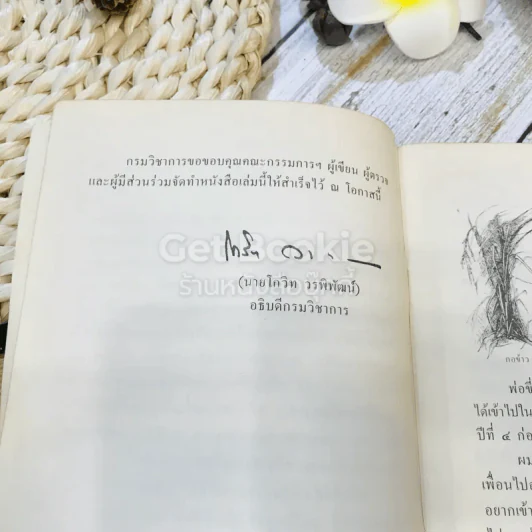 กรมวิชาการขอขอบคุณคณะกรรมการฯ ผู้เขียน ผู้ตรวจ
และผู้มีส่วนร่วมจัดทำหนังสือเล่มนี้ให้สำเร็จไว้ ณ โอกาสนี้
GetBookie
ร้านหนังสือบุ๊กกี้
(นายโกวิท วรพิพัฒน์)
อธิบดีกรมวิชาการ
กอข้าว
พ่อขี่
ได้เข้าไปใน
ปีที่ ๔ ก่อ
ผม
เพื่อนไป
อยากเข้า